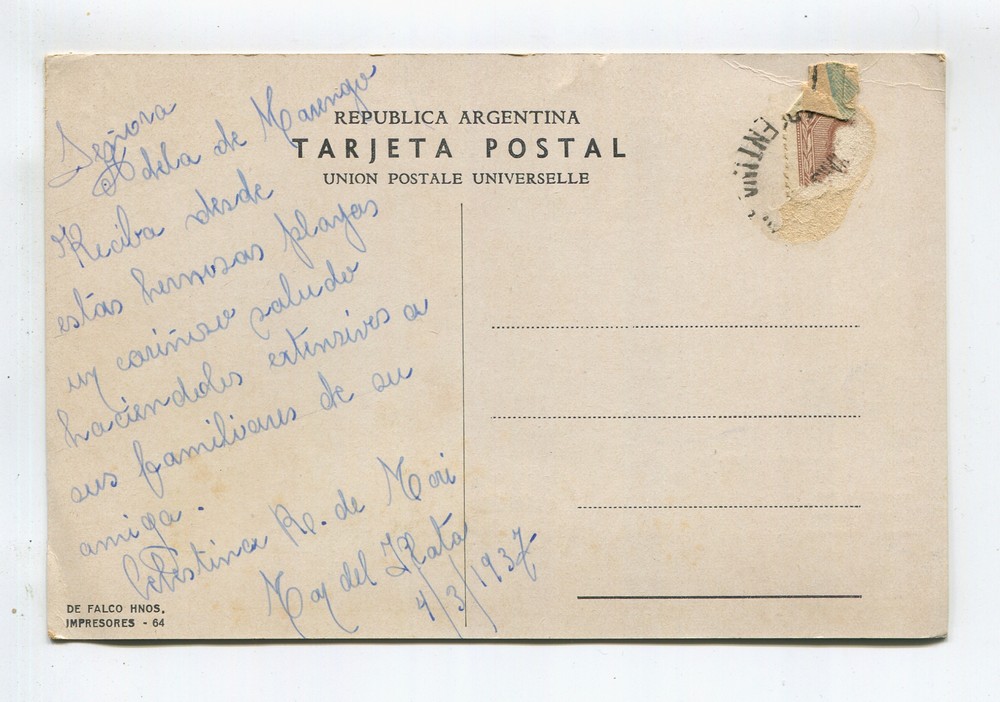 REPUBLICA ARGENTINA
TARJETA POSTAL
UNION POSTALE UNIVERSELLE
Señora
Adela de Marengo
Reciba desde
estas hermosas playas
un cariñoso saludo
haciendoles extensivos a
sus familiares de su
amiga.
Celestina R. de Mori
Mar del Plata
4/3/1937
DE FALCO HNOS.
IMPRESORES - 64
ARGENTINA